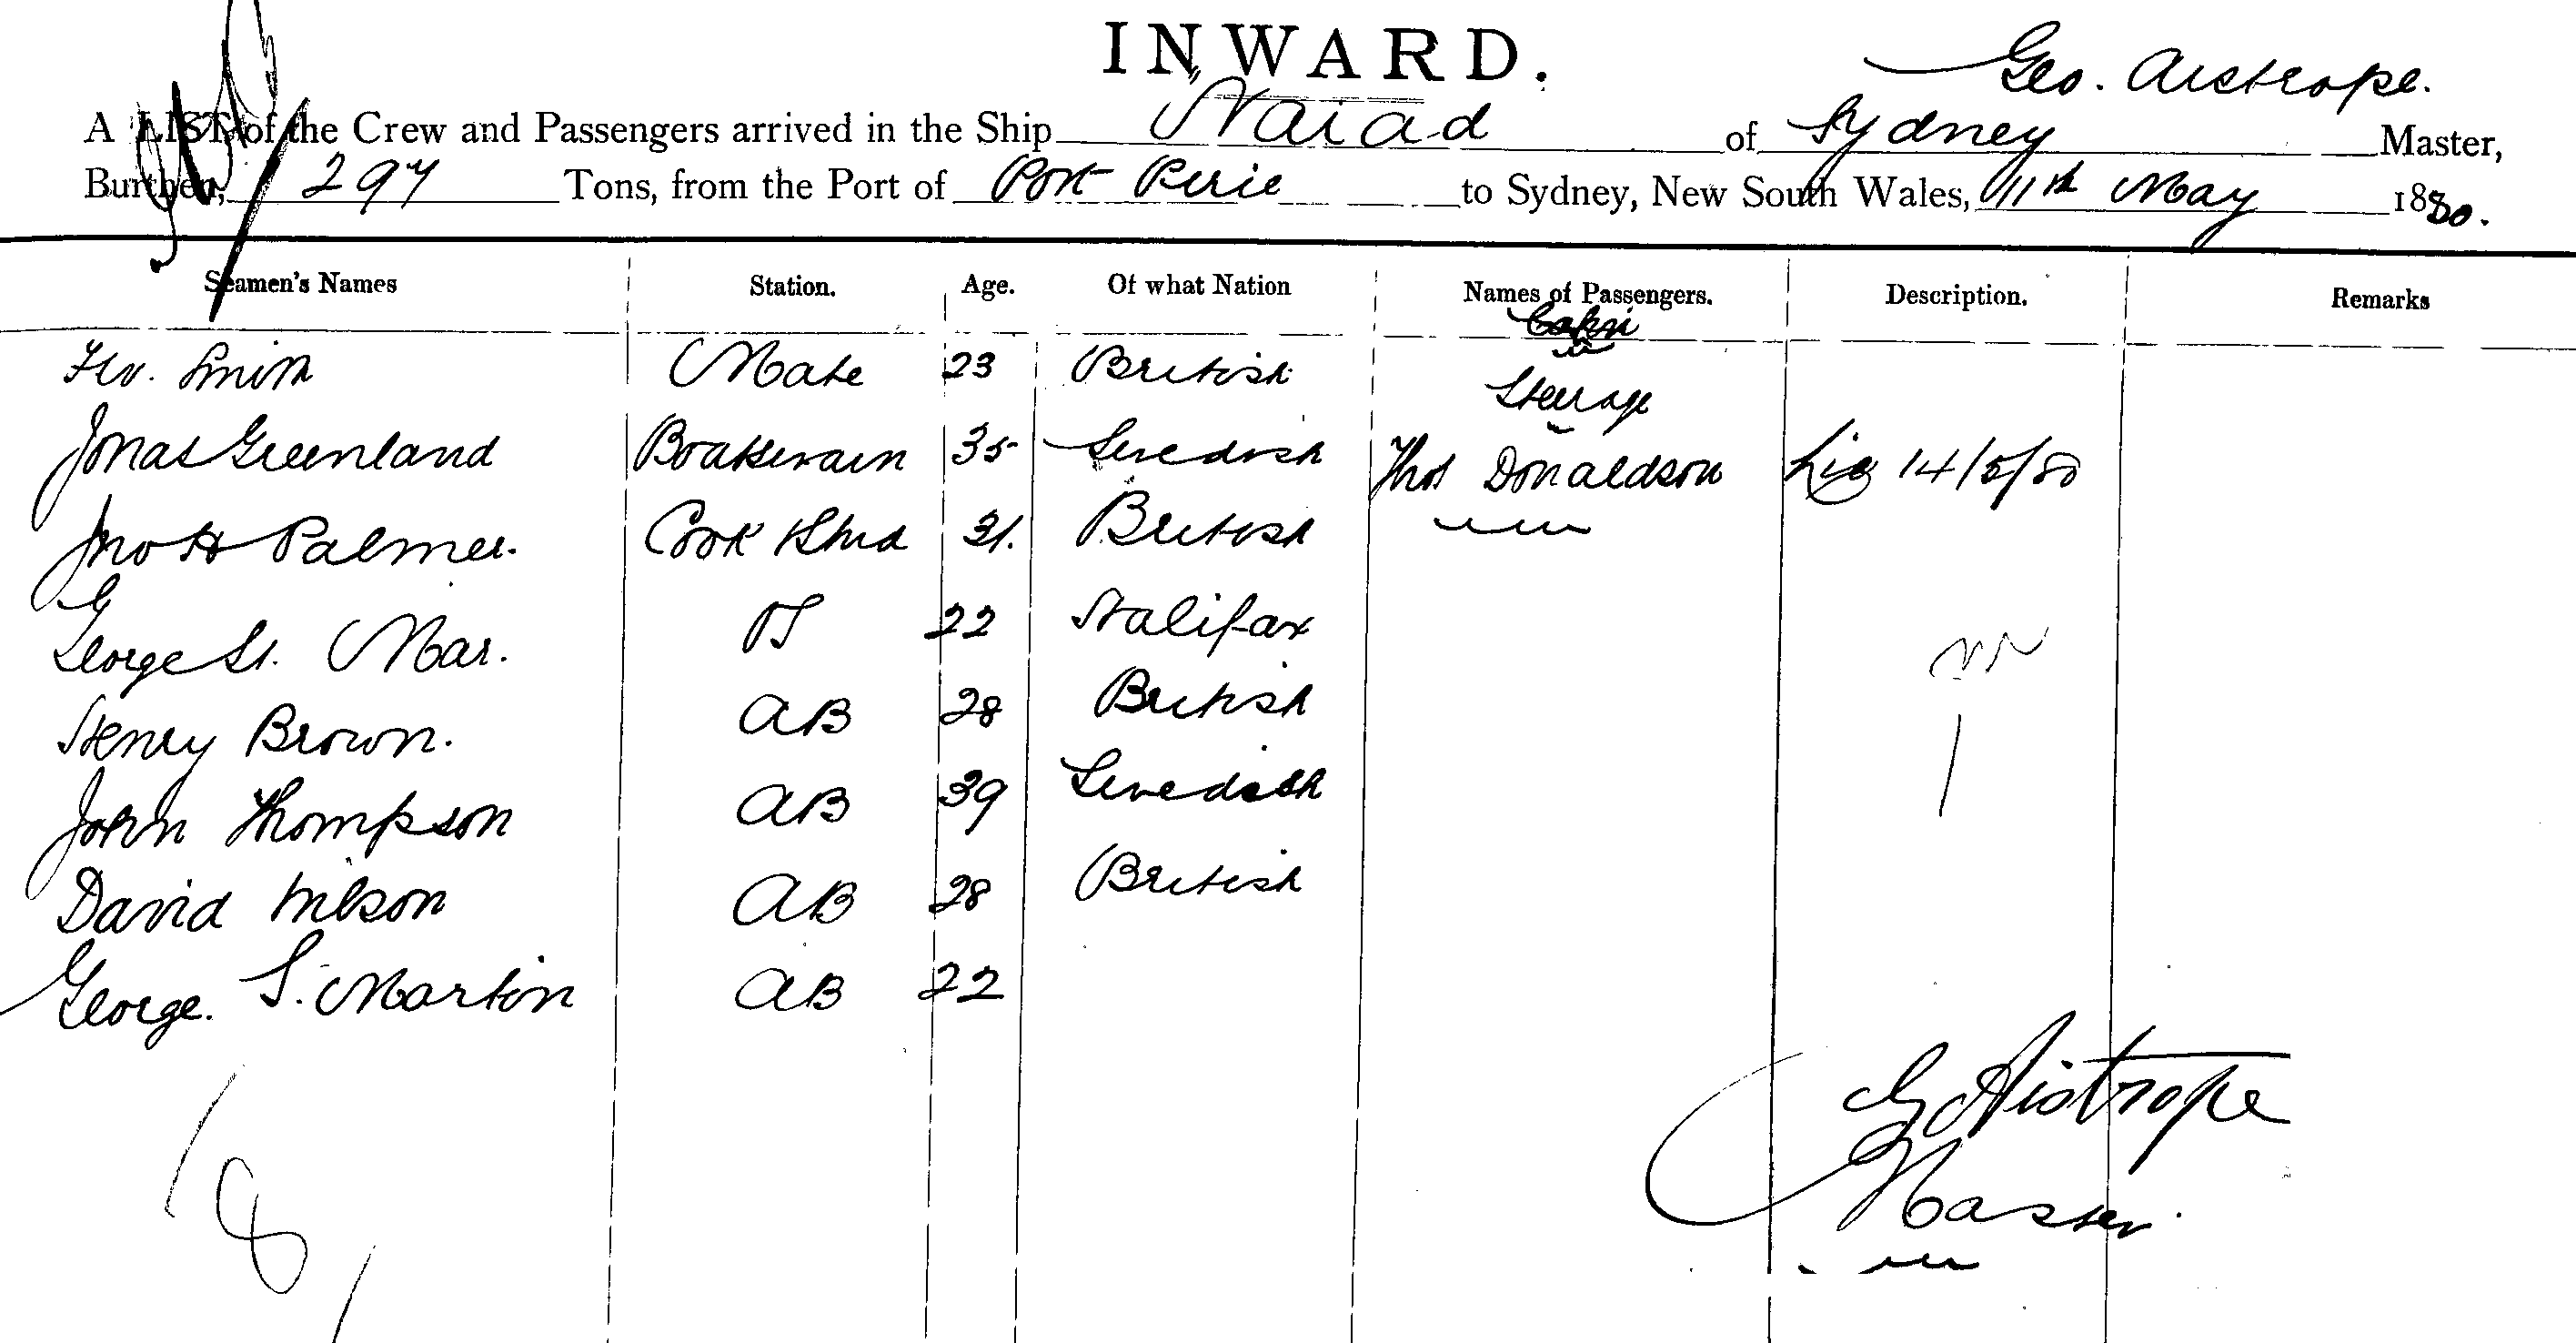 INWARD.
Geo. Aistrope.
A LIST of the Crew and Passengers arrived in the Ship Naiad of Sydney Master,
Burthen, 297 Tons, from the Port of Port Pirie to Sydney, New South Wales, 11th May 1880.
Seamen's Names Station. Age. Of what Nation Names of Passengers. Description. Remarks
Smith Mate 23 British
Steerage
Jonas Greenland Boatswain 35 Swedish Thos Donaldson 14/5/80
Jno H Palmer. Cook & Stud 31. British
George St. Mar. 22 Halifax
Henry Brown. AB 28 British
John Thompson AB 39 Swedish
David Wilson AB 28 British
George. S. Martin AB 22
G Aistrope
Master.
8